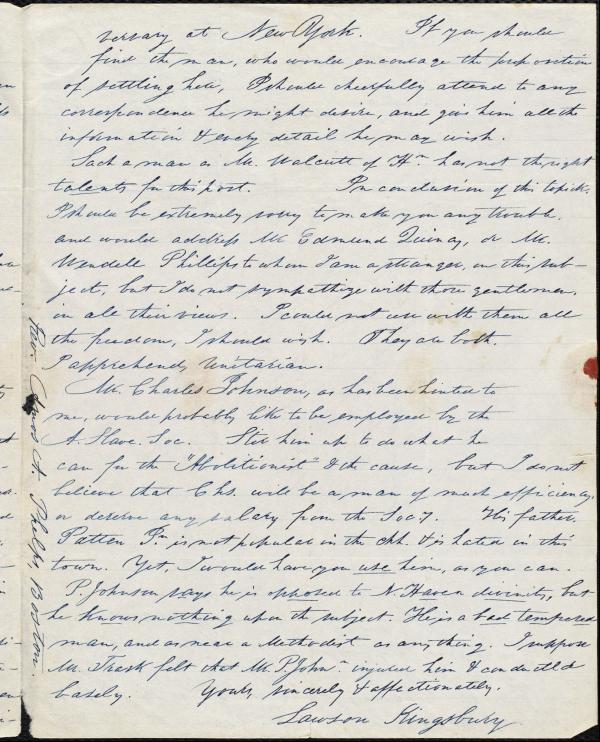 versary at New York. If you should
find the man, who would encourage the proposition
of settling here, I should cheerfully attend to any
correspondence he might desire, and give him all the
information & every detail he may wish.
Such a man as Mr. Walcutt of Hn. has not the right
talents for this post. In conclusion of this topick.
I should be extremely sorry to make you any trouble.
and would address Mr Edmund Quincy, or Mr.
Wendell Phillips to whom I am a stranger, on this sub-
ject, but I do not sympathize with those gentlemen
in all their views. I could not use with them all
the freedom, I should wish. They are both.
I apprehend, Unitarian.
Mr. Charles Johnson, as has been hinted to
me, would probably like to be employed by the
A. Slave. Soc. Stir him up to do what he
can for the "Abolitionist" & the cause, but I do not
believe that Chs. will be a man of much efficiency,
or deserve any salary from the Socy. His father,
Patten Jn. is not popular in the chh. & is hated in this
town. Yet, I would have you use him, as you can.
P. Johnson says he is opposed to N. Haven divinity, but
he knows nothing upon the subject. He is a bad tempered
man, and as near a Methodist as anything. I suppose
Mr. Trask felt that Mr. P John- injured him & conducted
basely. Yours, sincerely & affectionately.
Lawson Kingsbury
Rev. Amos A. Phelps, Boston.